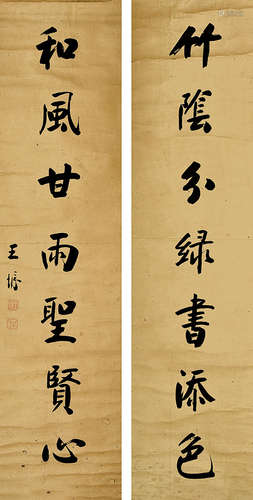 竹陰分綠書添色
和風甘雨聖賢心